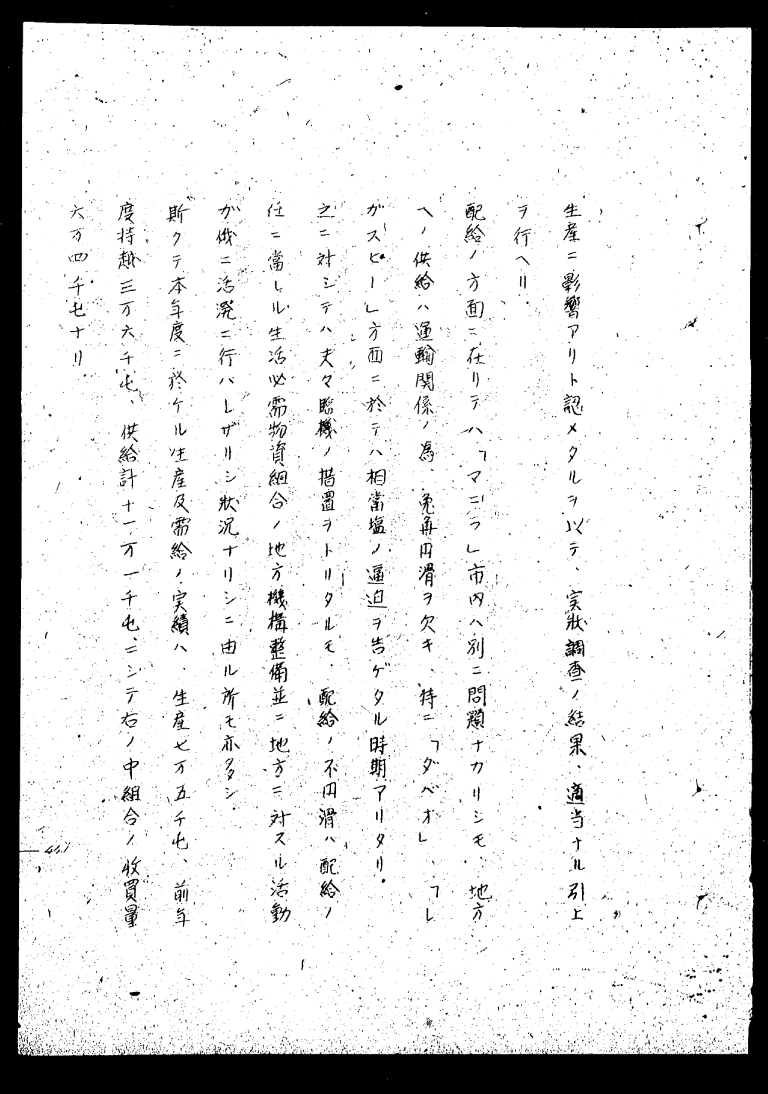 生産ニ影響アリト認メタルヲ以テ、実状調査ノ結果、適当ナル引上
ヲ行ヘリ.
配給ノ方面ニ在リテハ「マニラ」市内ハ別ニ問題ナカリシモ、地方
ヘノ供給ハ運輸関係ノ為、兎角円滑ヲ欠キ、特ニ「ダベオ」、「レ
ガスピー」方面ニ於テハ相當塩ノ逼迫ヲ告ゲタル時期アリタリ。
之ニ対シテハ夫々臨機ノ措置ヲトリタルモ、配給ノ不円滑ハ配給ノ
任ニ當レル生活必需物資組合ノ地方機構整備並ニ地方ニ対スル活動
ガ俄ニ活発ニ行ハレザリシ状況ナリシニ由ル所モ亦多タシ.
斯クテ本年度ニ於ケル生産及需給ノ実績ハ、生産七万五千屯、前年
度持越三万六千屯、供給計十一万一千屯、ニシテ右ノ中組合ノ收買量
六万四千屯ナリ.